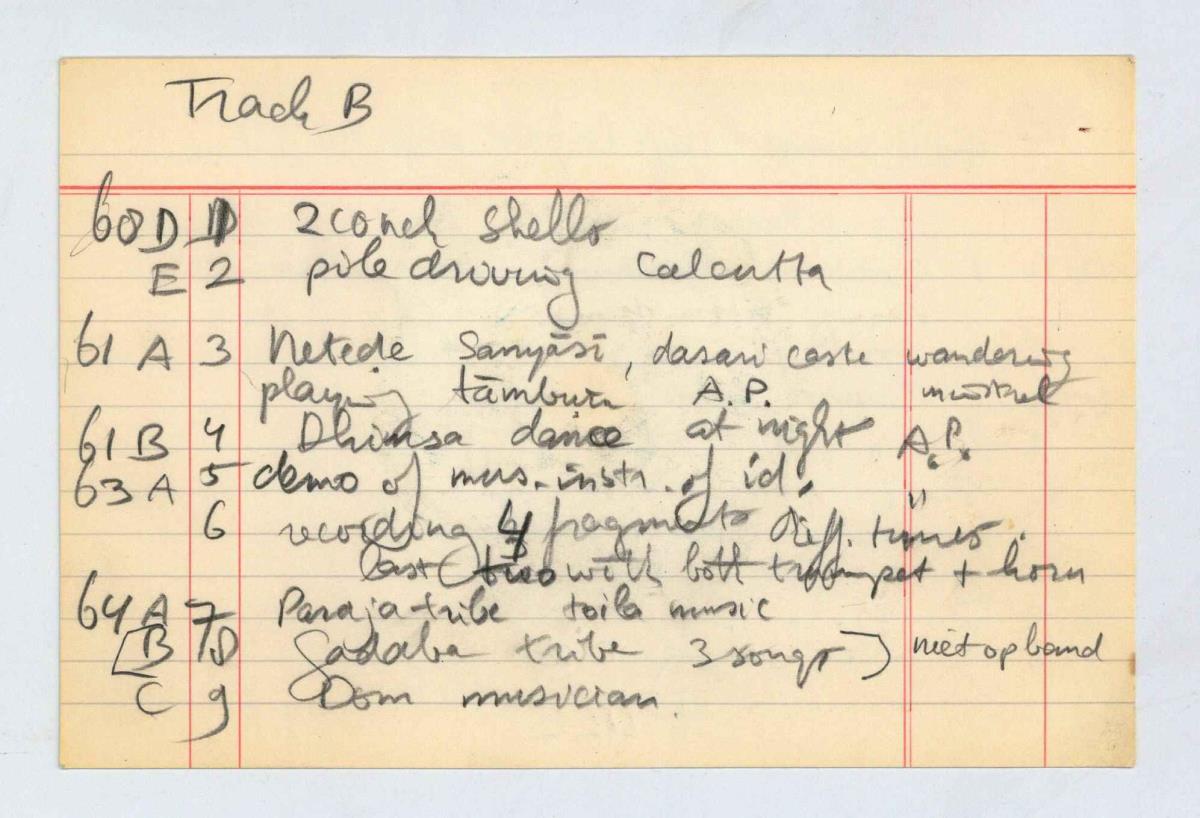 Track B
60 D 1 2 conch shells
E 2 pile driving Calcutta
61 A 3 Netede Sanyāsī, dasari caste wandering
playing tāmburā A.P. minstrel
61 B 4 Dhimsa dance at night A.P.
63 A 5 demo of mus. instr. of id. "
6 recording 4 fragments diff. tunes.
last (two with both trumpet + horn
64 A 7 Paraja tribe toila music
[B Gadaba tribe 3 songs] niet op band
C 9 Dom musician.